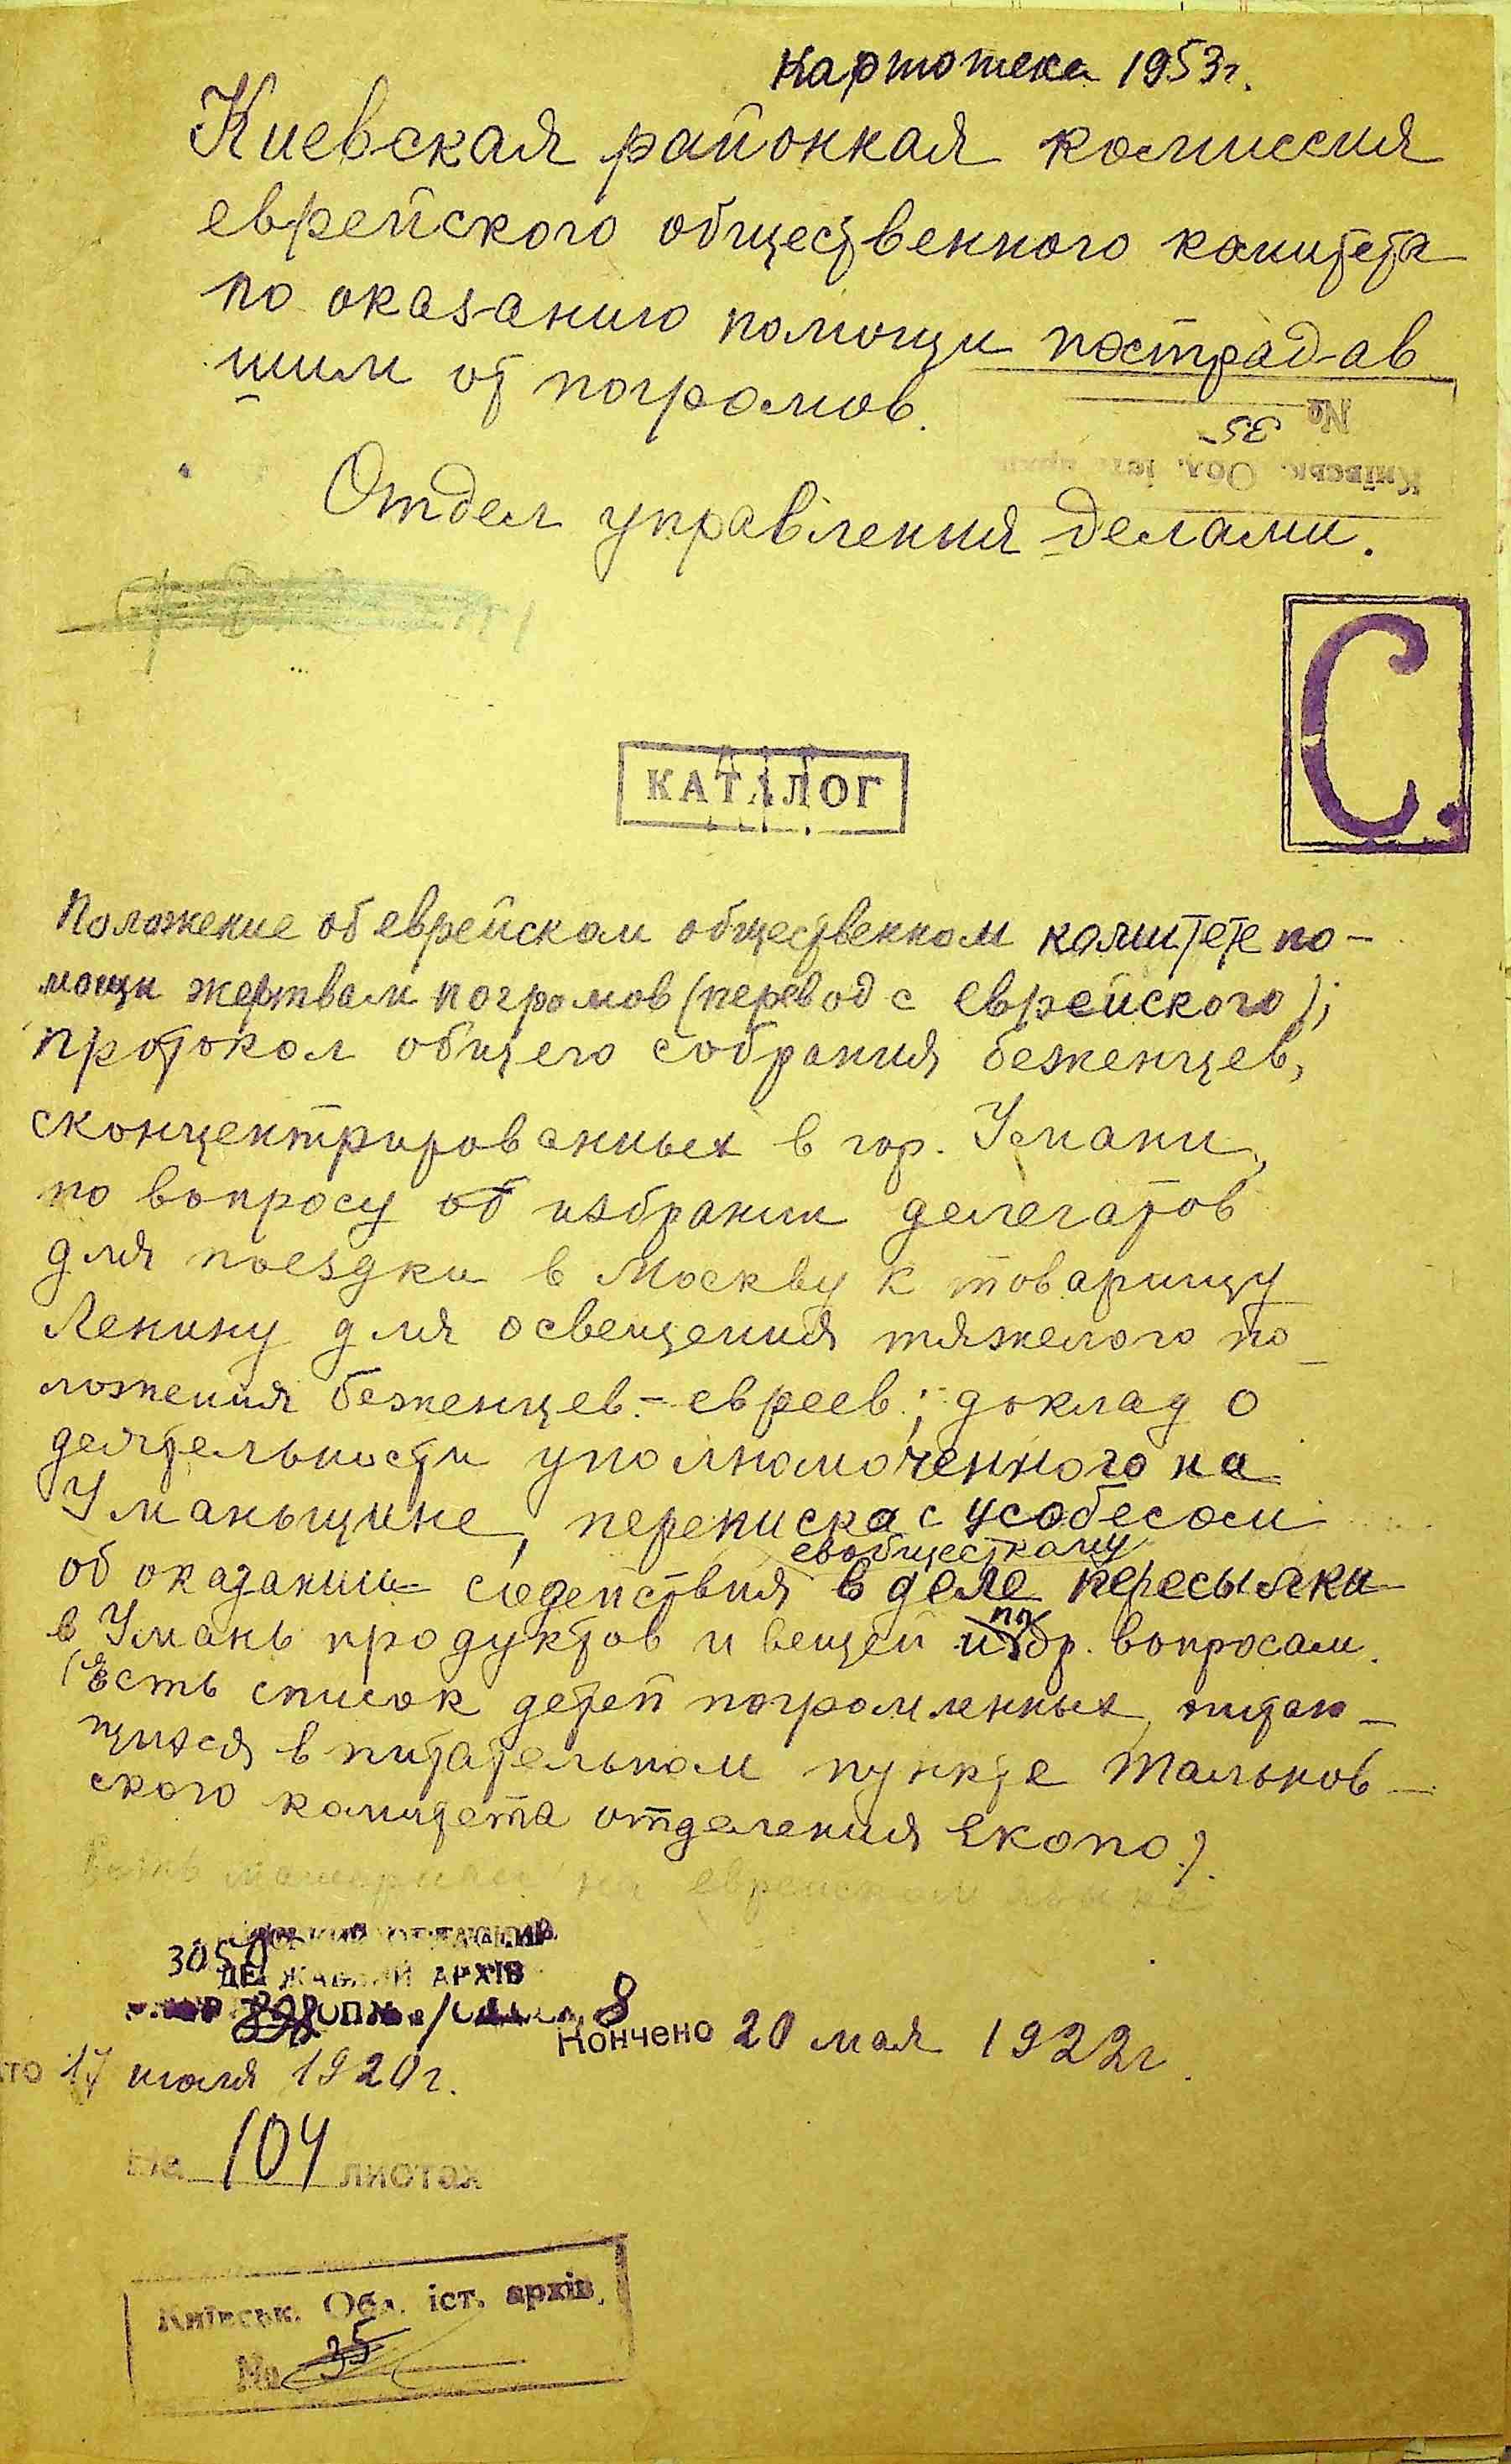 Картотека 1953г.
Киевская районная комиссия
еврейского общественного комитета
по оказанию помощи пострадав
шим от погромов.
№ 35
Київськ. Обл. іст. архів
Отдел управления делами.
С.
КАТАЛОГ
Положение об еврейском общественном комитете по-
мощи жертвам погромов (перевод с еврейского);
протокол общего собрания беженцев,
сконцентрированных в гор. Умани,
по вопросу об избрании делегатов
для поездки в Москву к товарищу
Ленину для освещения тяжелого по
ложения беженцев-евреев; доклад о
деятельности уполномоченного на
Уманьщине, переписка с усобесом
евобщесткому
об оказании содействия в деле пересылки
в Умань продуктов и вещей и др. вопросам.
(Есть список детей погромленных, питаю-
щихся в питательном пункте Тальнов-
ского комитета отделения Екопо).
Есть материал на еврейском языке
3050
ДЕРЖАВНИЙ АРХІВ
1 8
Кончено 20 мая 1922г.
17 июля 1920г.
104 листах
Київськ. Обл. іст. архів
№ 35